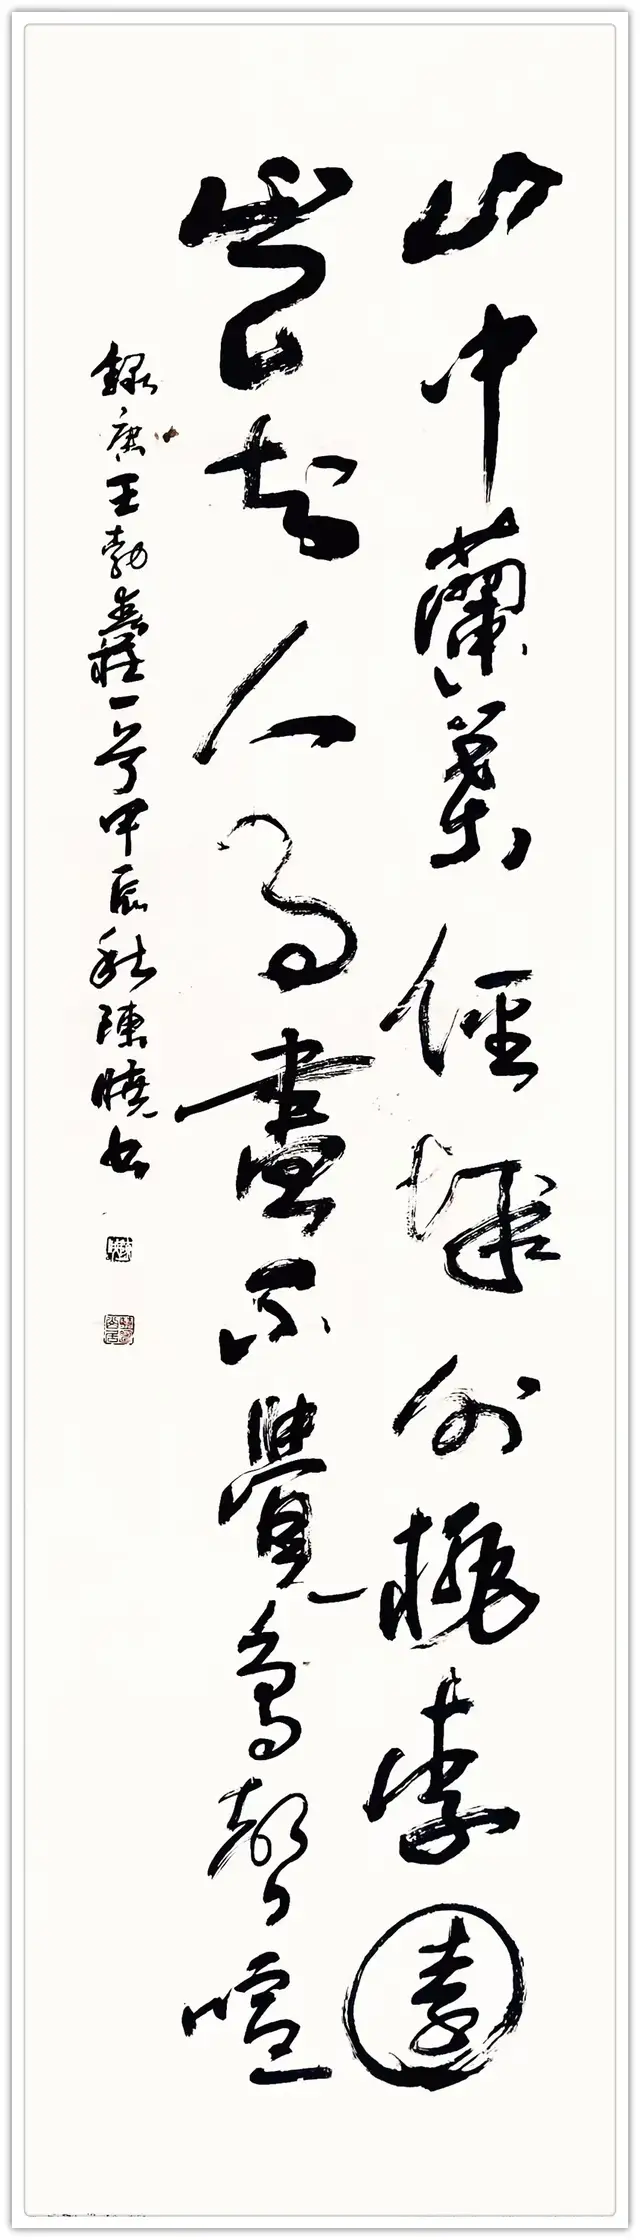 山中蘭葉徑城外桃李園
豈知人事不覺鳥聲喧
錄唐王勃春莊一首甲辰秋陳曉書